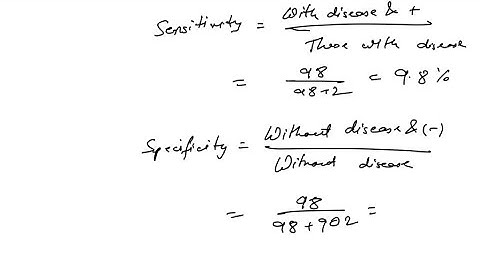 Sensitivity = With disease & +
Those with disease
= 98
98+2 = 9.8%
Specificity = Without disease & (-)
Without disease
= 98
98+902 =